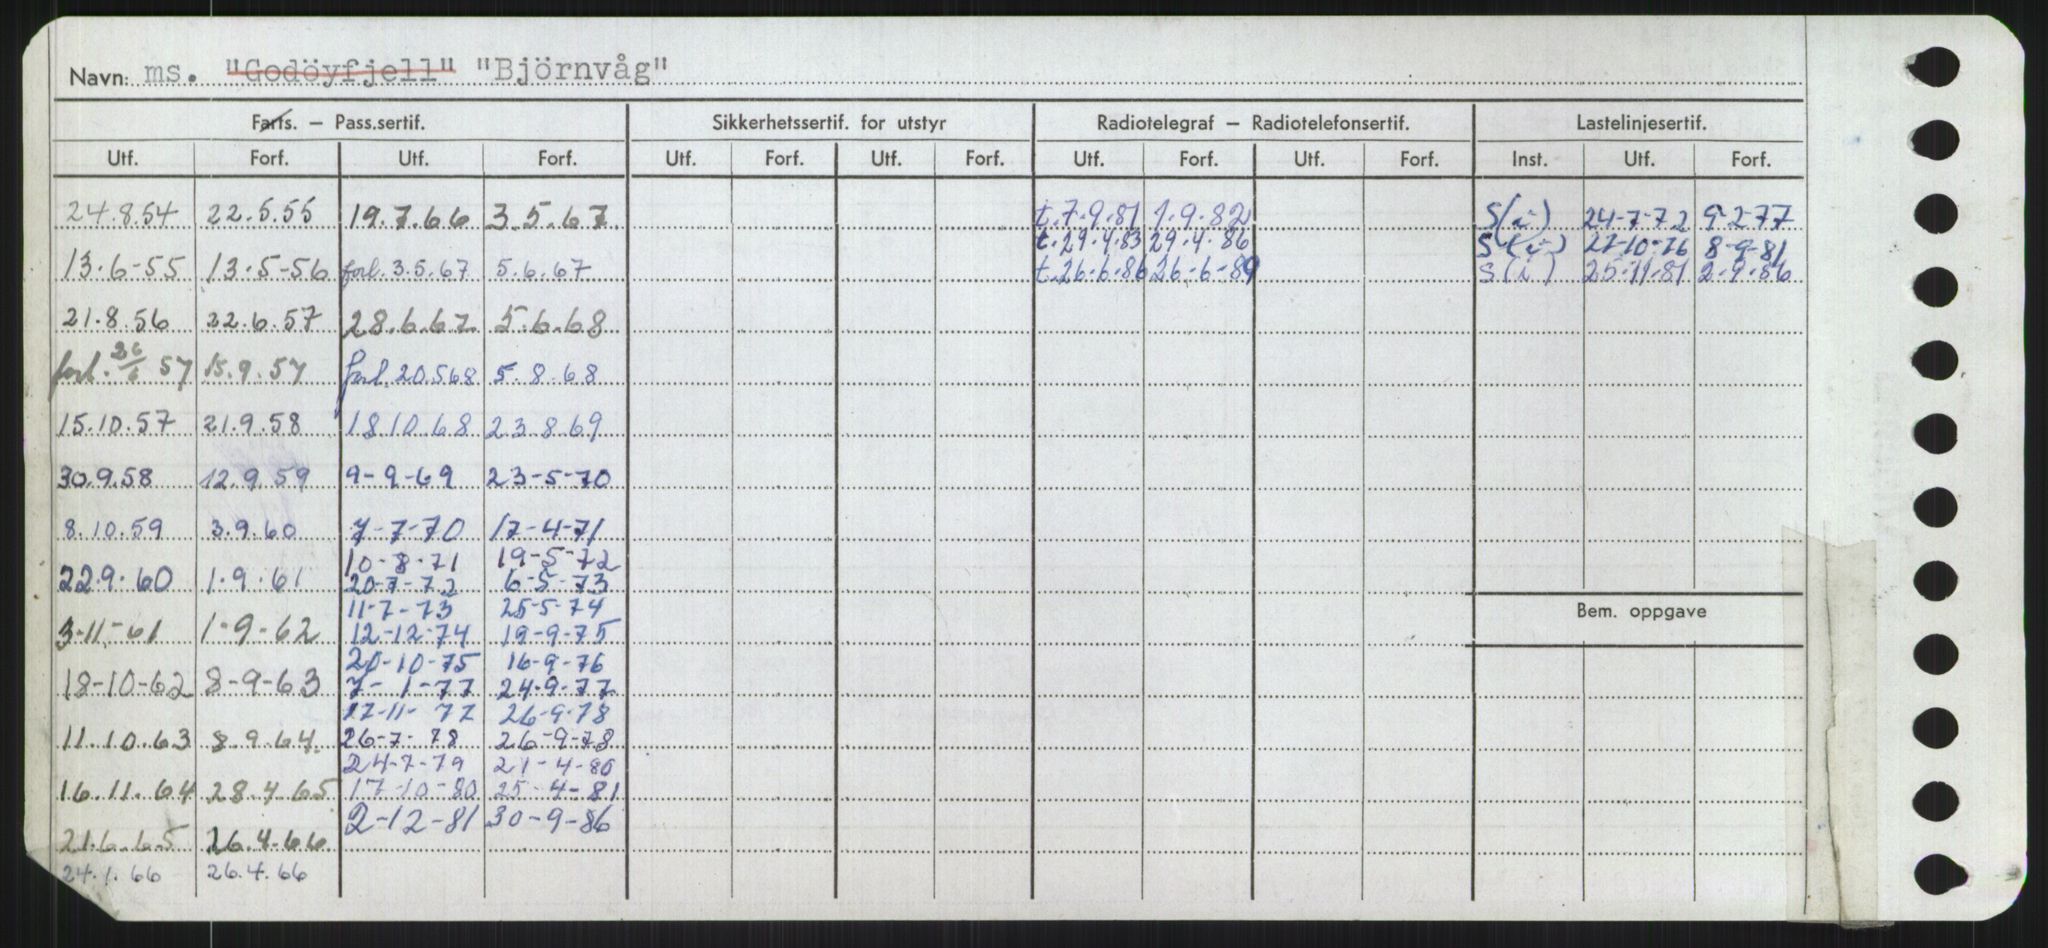 Navn: ms. "Godöyfjell" "Björnvåg"
Farts. – Pass.sertif. Sikkerhetssertif. for utstyr Radiotelegraf – Radiotelefonsertif. Lastelinjesertif.
Utf. Forf. Utf. Forf. Utf. Forf. Utf. Forf. Utf. Forf. Utf. Forf. Inst. Utf. Forf.
24.8.54 22.5.55 19.7.66 3.5.67 t.7.9.81 1.9.82 S(i) 24-7-72 9-2-77
t.29.4.83 29.4.86 S(i) 27-10-76 8-9-81
13.6-55 13.5-56 forl. 3.5.67 5.6.67 t.26.6.86 26-6-89 S(i) 25-11-81 2-9-86
21.8.56 22.6.57 28.6.67 5.6.68
forl. 26/6 57 15.9.57 forl. 20.568 5.8.68
15.10.57 21.9.58 18.10.68 23.8.69
30.9.58 12.9.59 9-9-69 23-5-70
8.10.59 3.9.60 7-7-70 17-4-71
10-8-71 19-5-72
22.9.60 1.9.61 20-7-72 6-5-73
11-7-73 25-5-74
3-11-61 1-9-62 12-12-74 19-9-75
20-10-75 16-9-76
18-10-62 8-9-63 7-1-77 24-9-77
17-11-77 26-9-78
11.10.63 8.9.64. 26-7-78 26-9-78
24-7-79 21-4-80
16.11.64 28.4.65 17-10-80 25-4-81
2-12-81 30-9-86
21.6.65 26.4.66
24.1.66 26.4.66
Bem. oppgave